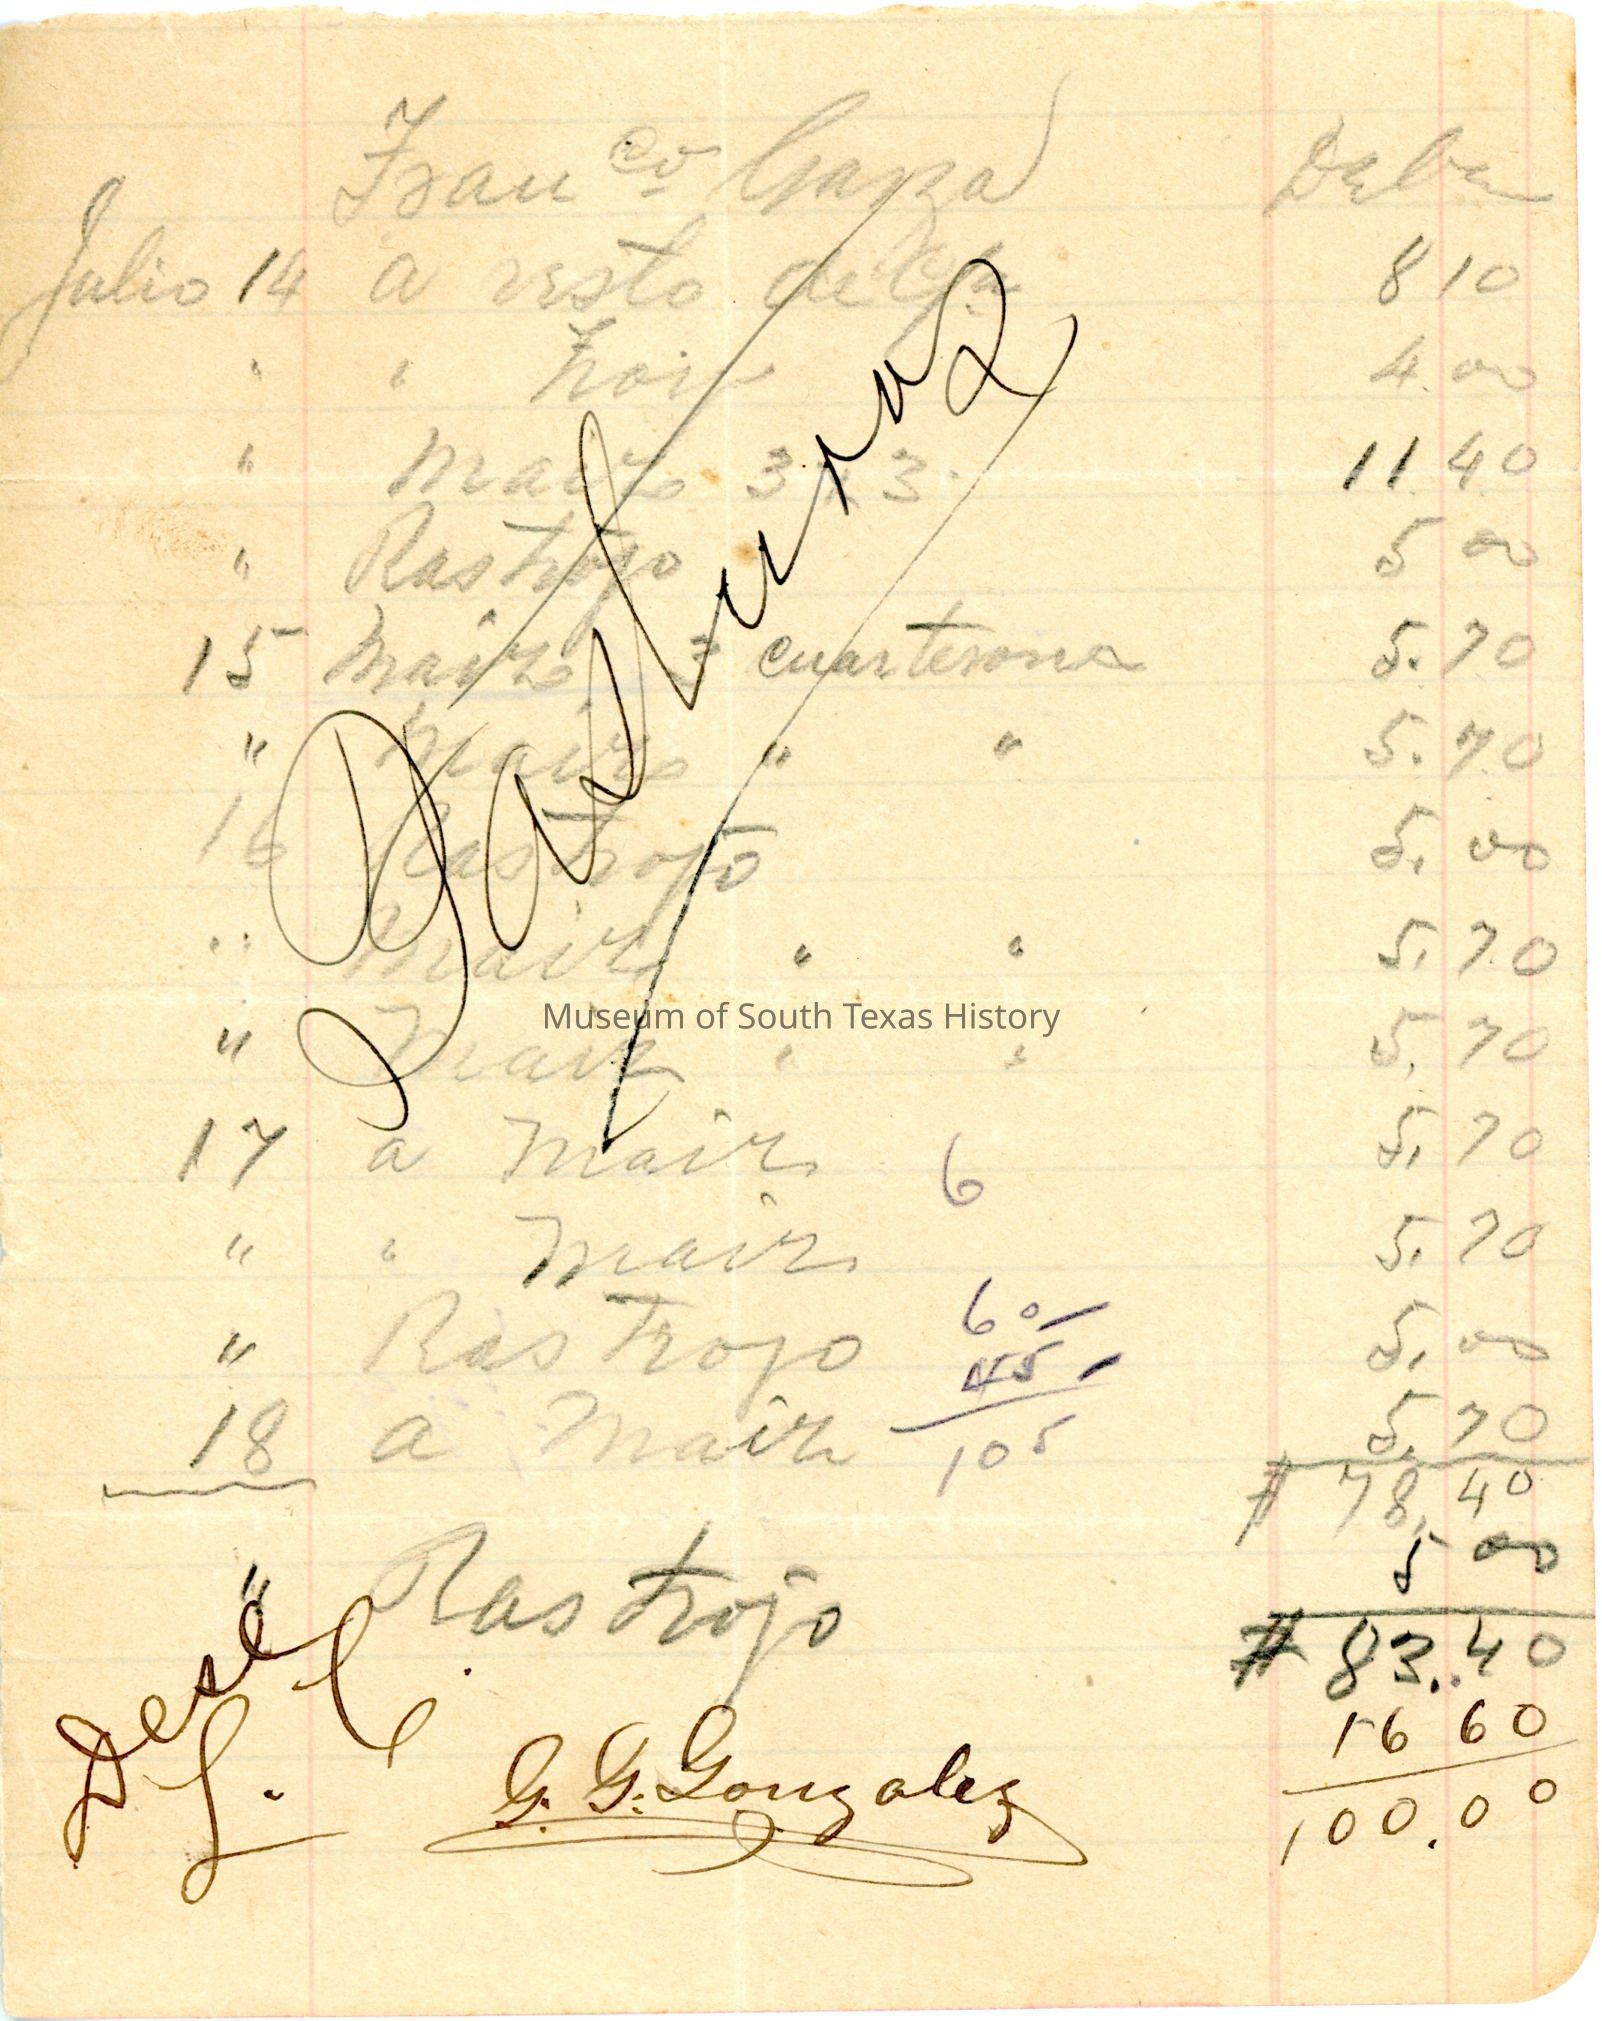 Franco Garza Debe
Julio 14 a resto de Cta 8 10
" " Frois 4.00
" Maiz 3 x 3. 11.40
" Rastrojo 5 00
15 Maiz 3 cuarterone 5.70
" Maiz " " 5.70
16 Rastrojo 5.00
" Maiz " " 5.70
" Maiz " " 5.70
Museum of South Texas History
17 a Maiz 5.70
6
" " Maiz 5.70
" Rastrojo 5.00
60
45
105
18 a Maiz 5.70
# 78.40
" Rastrojo 5 00
# 83.40
16 60
100.00
G. G. Gonzalez